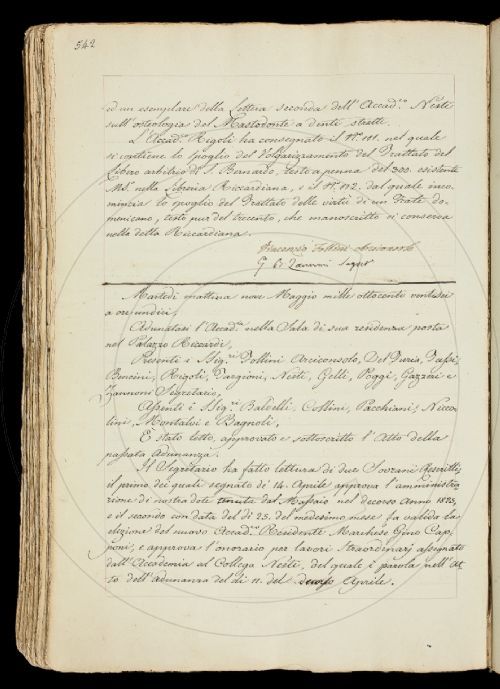 542
ed un esemplare della Lettera seconda dell'Accad.co Nesti
sull'osteologia del Mastodonte a denti stretti.
L'Accad.co Rigoli ha consegnato il N.o 111. nel quale
si contiene lo spoglio del Volgarizzamento del Trattato del
Libero arbitrio di S. Bernardo, testo a penna del 300. esistente
MS. nella Libreria Riccardiana, e il N.o 112. dal quale inco-
mincia lo spoglio del Trattato delle virtù di un Frate do-
menicano, testo pur del trecento, che manoscritto si conserva
nella detta Riccardiana.
Vincenzio Follini Arciconsolo
G B Zannoni Segret
Martedì mattina nove Maggio mille ottocento ventisei
a ore undici,
Adunatasi l'Accad.a nella Sala di sua residenza posta
nel Palazzo Riccardi,
Presenti i Sig.ri Follini Arciconsolo, Del Furia,
Bencini, Rigoli, Targioni, Nesti, Gelli, Poggi, Gazzeri e
Zannoni Segretario,
Assenti i Sig.ri Baldelli, Collini, Pacchiani, Nicco-
lini, Montalvi e Bagnoli,
È stato letto, approvato e sottoscritto l'Atto della
passata Adunanza.
Il Segretario ha fatto lettura di due Sovrani Rescritti,
il primo dei quali segnato de' 14. Aprile approva l'amministra-
zione di nostra dote tenuta dal Massaio nel decorso Anno 1825,
e il secondo con data del dì 23. del medesimo mese fa valida la
elezione del nuovo Accad.co Residente Marchese Gino Cap-
poni, e approva l'onorario per lavori straordinarj assegnato
dall'Accademia al Collega Nesti, del quale è parola nell'At-
to dell'adunanza del dì 11. del Aprile.